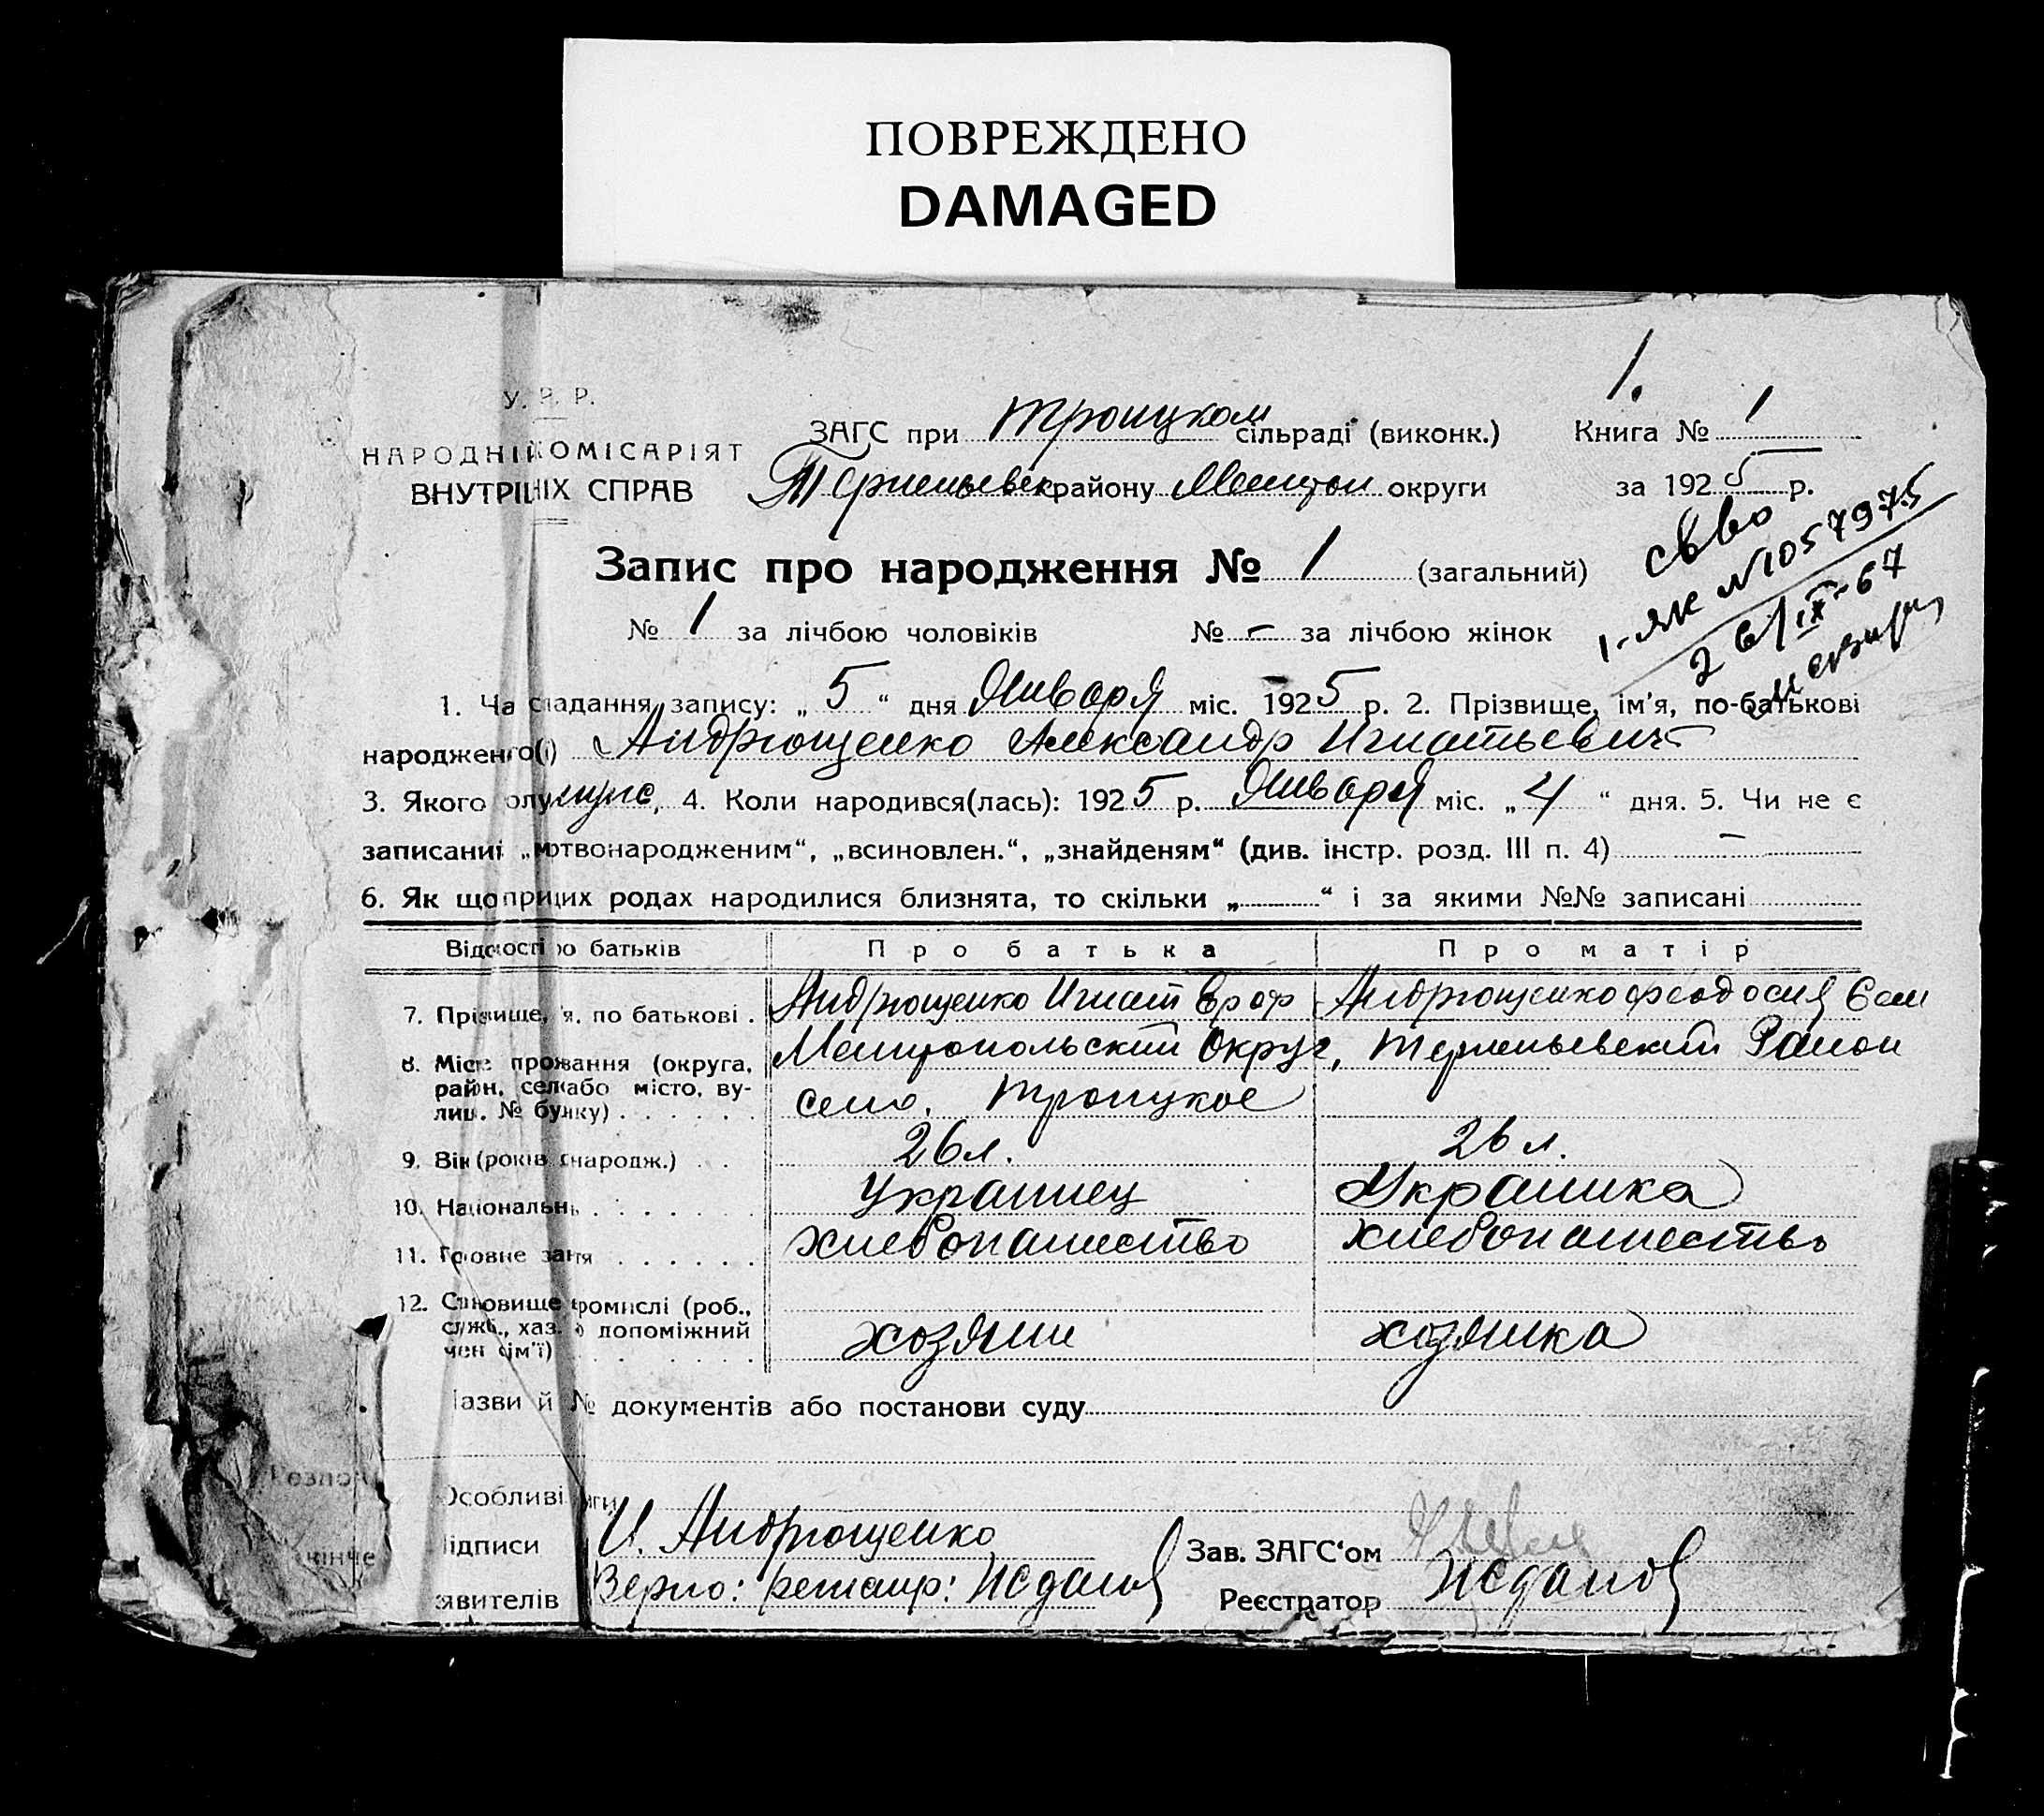 ПОВРЕЖДЕНО
DAMAGED
1.
У. Р. Р.
НАРОДНІ КОМІСАРІЯТ
ВНУТРІШНІХ СПРАВ
ЗАГС при Троицком сільраді (виконк.) Книга № 1
Терпеньевск району Мелитоп округи за 1925 р.
Запис про народження № 1 (загальний)
№ 1 за лічбою чоловіків № – за лічбою жінок
свво
1-ЯК №1057975
26/IX-67
1. Час складання запису: „ 5 “ дня Января міс. 1925 р. 2. Прізвище, ім'я, по-батькові
народженого(ї) Андрющенко Александр Игнатьевич
3. Якого полу муж, 4. Коли народився(лась): 1925 р. Января міс. „ 4 “ дня. 5. Чи не є
записаний „мертвонародженим“, „всиновлен.“, „знайденям“ (див. інстр. розд. III п. 4) –
6. Як що при цих родах народилися близнята, то скільки „ “ і за якими №№ записані
Відомості про батьків Про батька Про матір
7. Прізвище, ім'я, по батькові . Андрющенко Игнат Ероф Андрющенко Феодосия Сем
8. Місце проживання (округа, район, село або місто, вулиця, № будинку) Мелитопольский Округ, Терпеньевский Район
село. Троицкое
9. Вік (років з народж.) 26 л. 26 л.
10. Національн Украинец Украинка
11. Головне заняття хлебопашество хлебопашество
12. Становище в промислі (роб.,
служб., хаз. допоміжний
член сім'ї) хозяин хозяйка
Назви й № документів або постанови суду
Розпо
Особливі
кінче
підписи И. Андрющенко Зав. ЗАГС‘ом
явителів Верно: регистр: Жданов Реєстратор Жданов